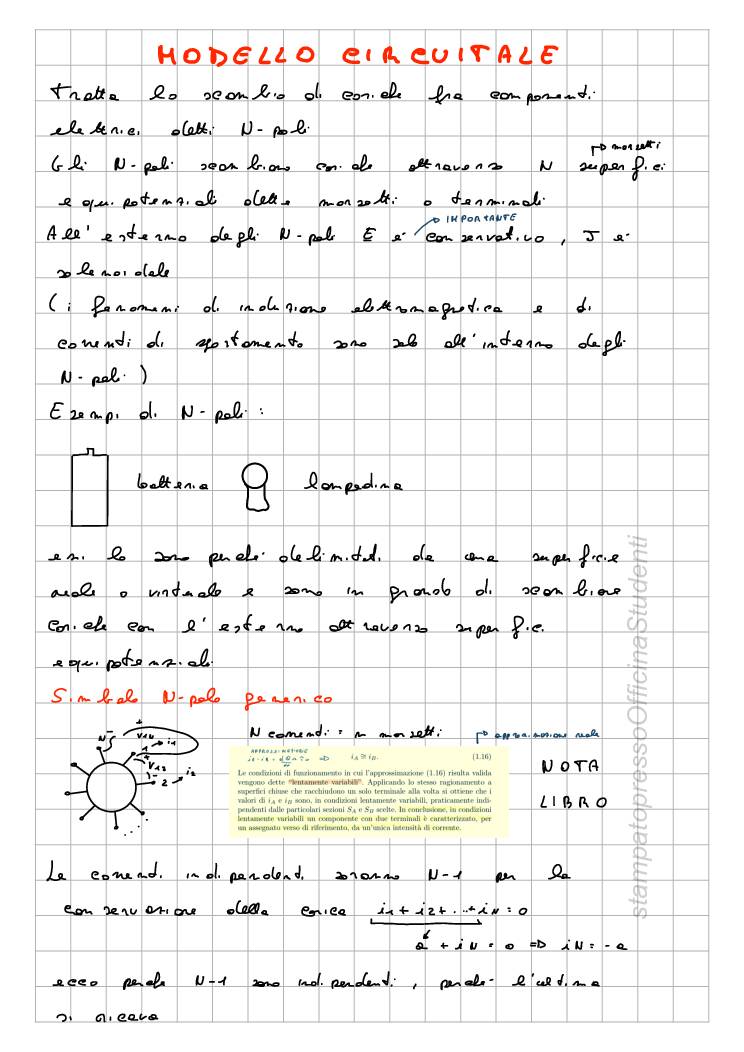 MODELLO CIRCUITALE
Tratta lo scambio di cariche fra componenti
elettrici detti N-poli
Gli N-poli scambiano cariche attraverso N superfici
→ morsetti
equipotenziali dette morsetti o terminali
→ IMPORTANTE
All'esterno degli N-poli E è conservativo, J è
solenoidale
(i fenomeni di induzione elettromagnetica e di
correnti di spostamento sono solo all'interno degli
N-poli)
Esempi di N-poli:
batteria lampadina
essi lo sono perché delimitati da una superficie
reale o virtuale e sono in grado di scambiare
cariche con l'esterno attraverso superfici
equipotenziali
Simbolo N-polo generico
N correnti = n morsetti
→ approssimazione reale
N
V1N
1 → i1
V12
2 → i2
APPROSSIMAZIONE
iA ≅ iB. (1.16)
Le condizioni di funzionamento in cui l'approssimazione (1.16) risulta valida
vengono dette "lentamente variabili". Applicando lo stesso ragionamento a
superfici chiuse che racchiudono un solo terminale alla volta si ottiene che i
valori di iA e iB sono, in condizioni lentamente variabili, praticamente indi-
pendenti dalle particolari sezioni SA e SB scelte. In conclusione, in condizioni
lentamente variabili un componente con due terminali è caratterizzato, per
un assegnato verso di riferimento, da un'unica intensità di corrente.
NOTA
LIBRO
Le correnti indipendenti saranno N-1 per la
conservazione della carica i1+i2+...+iN=0
a + iN = 0 ⇒ iN = -a
ecco perché N-1 sono indipendenti, perché l'ultima
si ricava
stampatopressoOfficinaStudenti